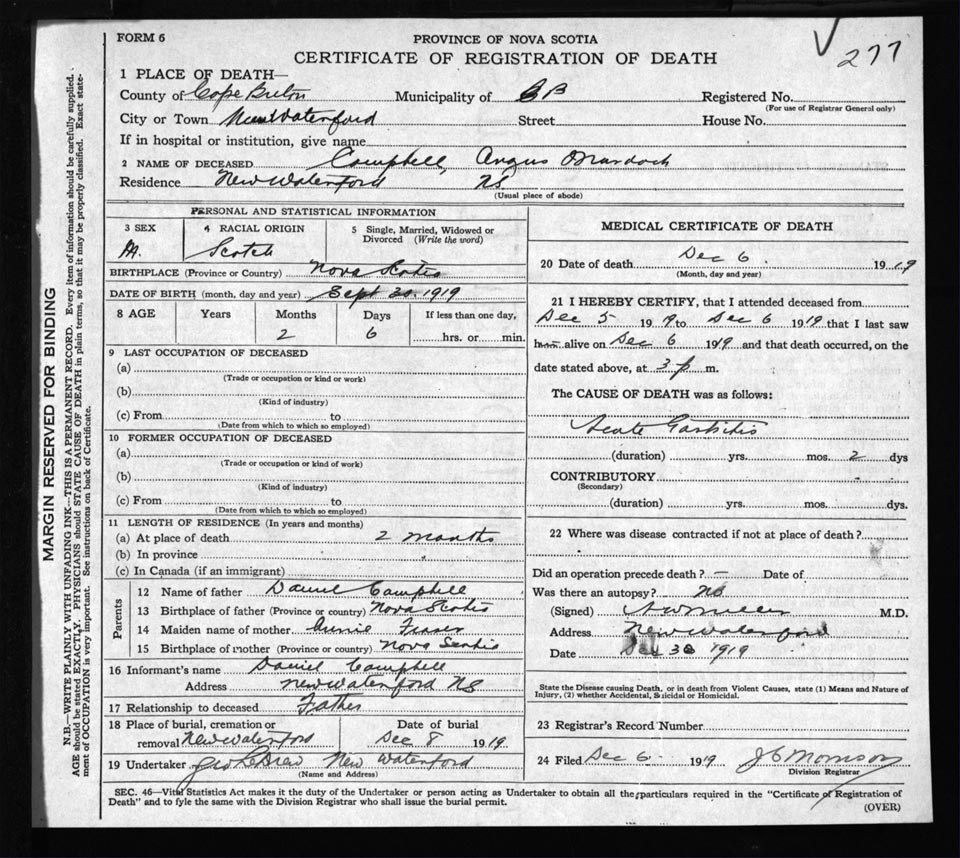 FORM 6
PROVINCE OF NOVA SCOTIA
CERTIFICATE OF REGISTRATION OF DEATH
277
1 PLACE OF DEATH—
County of Cape Breton Municipality of C B Registered No.
(For use of Registrar General only)
City or Town New Waterford Street House No.
If in hospital or institution, give name
2 NAME OF DECEASED Campbell, Angus Murdoch
Residence New Waterford NS
(Usual place of abode)
MARGIN RESERVED FOR BINDING
N.B.—WRITE PLAINLY WITH UNFADING INK—THIS IS A PERMANENT RECORD. Every item of information should be carefully supplied.
AGE should be stated EXACTLY. PHYSICIANS should STATE CAUSE OF DEATH in plain terms, so that it may be properly classified. Exact state-
ment of OCCUPATION is very important. See instructions on back of Certificate.
PERSONAL AND STATISTICAL INFORMATION
3 SEX 4 RACIAL ORIGIN 5 Single, Married, Widowed or
Divorced (Write the word)
M. Scotch
BIRTHPLACE (Province or Country) Nova Scotia
DATE OF BIRTH (month, day and year) Sept 30 1919
8 AGE Years Months Days If less than one day,
2 6 hrs. or min.
9 LAST OCCUPATION OF DECEASED
(a)
(Trade or occupation or kind or work)
(b)
(Kind of industry)
(c) From to
(Date from which to which so employed)
10 FORMER OCCUPATION OF DECEASED
(a)
(Trade or occupation or kind of work)
(b)
(Kind of industry)
(c) From to
(Date from which to which so employed)
11 LENGTH OF RESIDENCE (In years and months)
(a) At place of death 2 months
(b) In province
(c) In Canada (if an immigrant)
Parents
12 Name of father Daniel Campbell
13 Birthplace of father (Province or country) Nova Scotia
14 Maiden name of mother Annie Fraser
15 Birthplace of mother (Province or country) Nova Scotia
16 Informant's name Daniel Campbell
Address New Waterford NS
17 Relationship to deceased Father
18 Place of burial, cremation or Date of burial
removal New Waterford Dec 8 1919
19 Undertaker Geo LeDrew New Waterford
(Name and Address)
MEDICAL CERTIFICATE OF DEATH
20 Date of death Dec 6. 1919
(Month, day and year)
21 I HEREBY CERTIFY, that I attended deceased from
Dec 5 1919 to Dec 6 1919 that I last saw
h alive on Dec 6 1919 and that death occurred, on the
date stated above, at 3 p m.
The CAUSE OF DEATH was as follows:
Acute Gastritis
(duration) yrs. mos. 2 dys
CONTRIBUTORY
(Secondary)
(duration) yrs. mos. dys.
22 Where was disease contracted if not at place of death?
Did an operation precede death? — Date of
Was there an autopsy? No
(Signed) M.D.
Address New Waterford
Date Dec 30 1919
State the Disease causing Death, or in death from Violent Causes, state (1) Means and Nature of
Injury, (2) whether Accidental, Suicidal or Homicidal.
23 Registrar's Record Number
24 Filed Dec 6. 1919 J C Morrison
Division Registrar
SEC. 46—Vital Statistics Act makes it the duty of the Undertaker or person acting as Undertaker to obtain all the particulars required in the "Certificate of Registration of
Death" and to fyle the same with the Division Registrar who shall issue the burial permit.
(OVER)